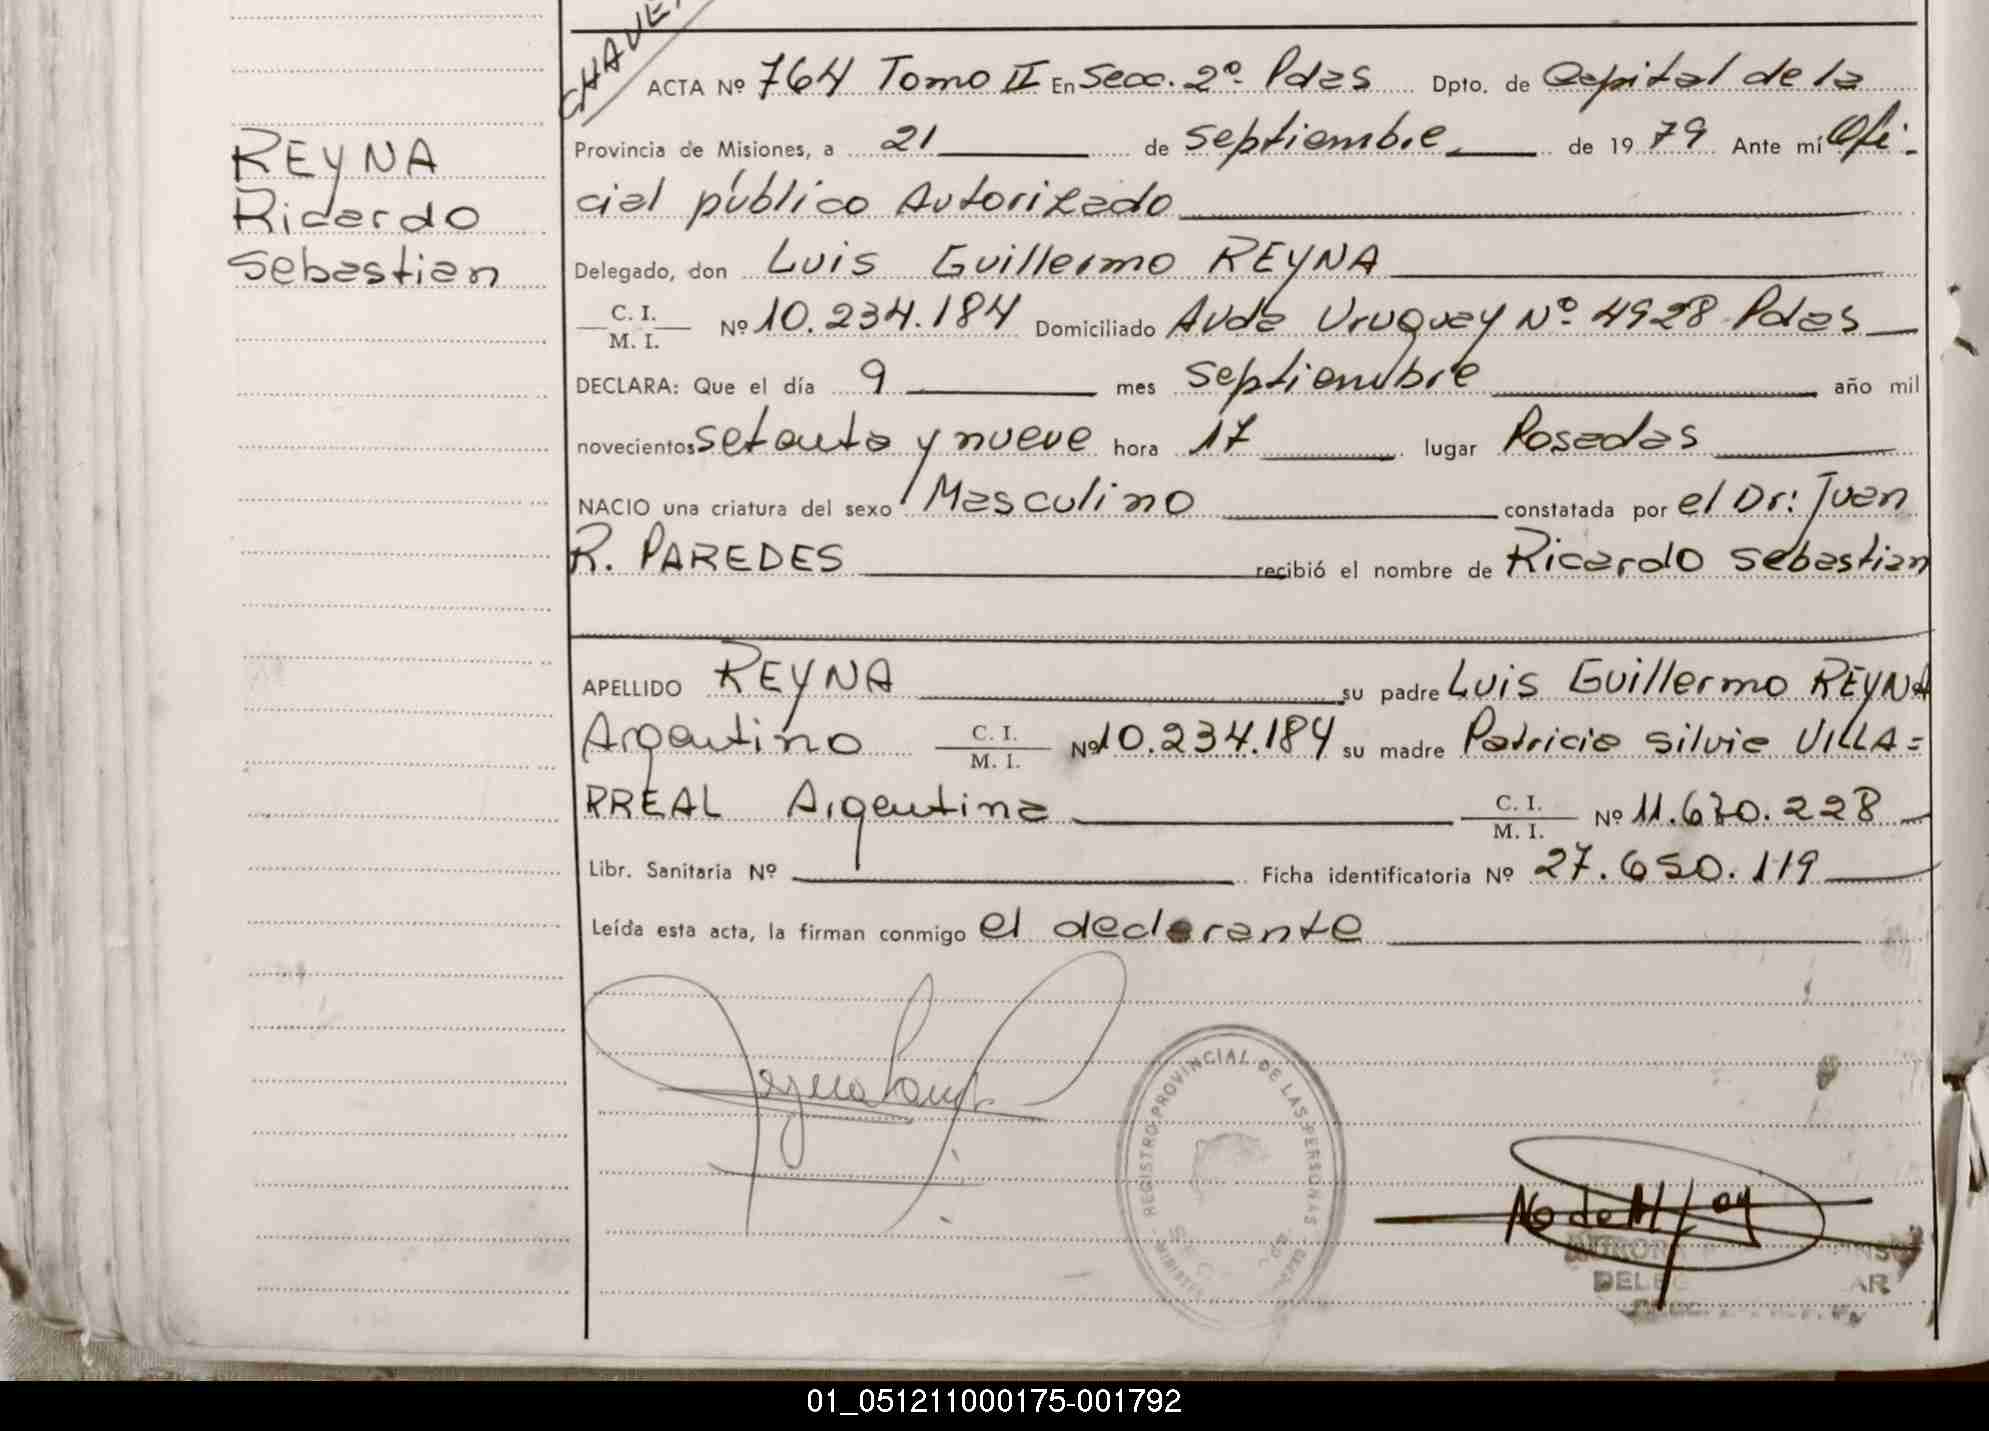 CHAVE
ACTA Nº 764 Tomo II En Secc. 2º Pdas Dpto. de Capital de la
Provincia de Misiones, a 21 de septiembre de 1979 Ante mí Ofi-
cial público Autorizado
REYNA
Ricardo
Sebastian
Delegado, don Luis Guillermo REYNA
C. I.
M. I. Nº 10.234.184 Domiciliado Avda Uruguay Nº 4928 Pdas
DECLARA: Que el día 9 mes septiembre año mil
novecientos setenta y nueve hora 17 lugar Posadas
NACIO una criatura del sexo Masculino constatada por el Dr: Juan
R. PAREDES recibió el nombre de Ricardo Sebastian
APELLIDO REYNA su padre Luis Guillermo REYNA
Argentino C. I. M. I. Nº 10.234.184 su madre Patricia Silvia VILLA=
RREAL Argentina C. I. M. I. Nº 11.670.228
Libr. Sanitaria Nº Ficha identificatoria Nº 27.650.119
Leída esta acta, la firman conmigo el declarante
REGISTRO PROVINCIAL DE LAS PERSONAS
01_051211000175-001792